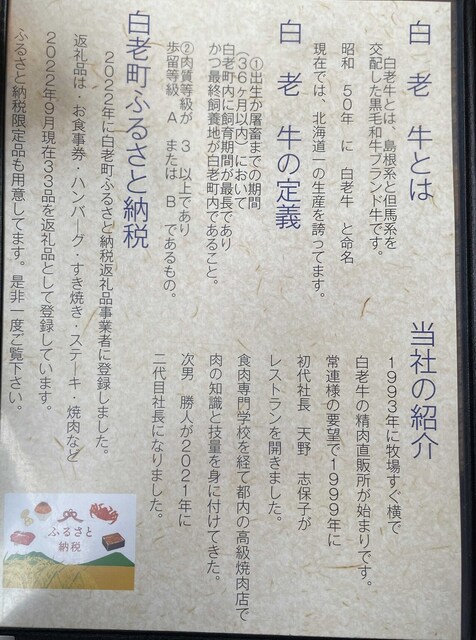 白 老 牛とは
白老牛とは、島根系と但馬系を
交配した黒毛和牛ブランド牛です。
昭和 50年 に 白老牛 と命名
現在では、北海道一の生産を誇ってます。
白 老 牛の定義
①出生か屠畜までの期間
(36ヶ月以内)において
白老町内に飼育期間が最長であり
かつ最終飼養地が白老町内であること。
②肉質等級が 3 以上であり
歩留等級 A または B であるもの。
白老町ふるさと納税
2022年に白老町ふるさと納税返礼品事業者に登録しました。
返礼品は・お食事券・ハンバーグ・すき焼き・ステーキ・焼肉など
2022年9月現在33品を返礼品として登録しています。
ふるさと納税限定品も用意してます。是非一度ご覧下さい。
当社の紹介
1993年に牧場すぐ横で
白老牛の精肉直販所が始まりです。
常連様の要望で1999年に
初代社長 天野 志保子が
レストランを開きました。
食肉専門学校を経て都内の高級焼肉店で
肉の知識と技量を身に付けてきた。
次男 勝人が2021年に
二代目社長になりました。
ふるさと
納税